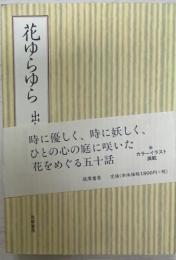 花ゆらゆら
出
時に優しく、時に妖しく、
ひとの心の庭に咲いた
花をめぐる五十話
カラーイラスト
満載
筑摩書房
定価(本体価格1900円+税)
筑摩書房